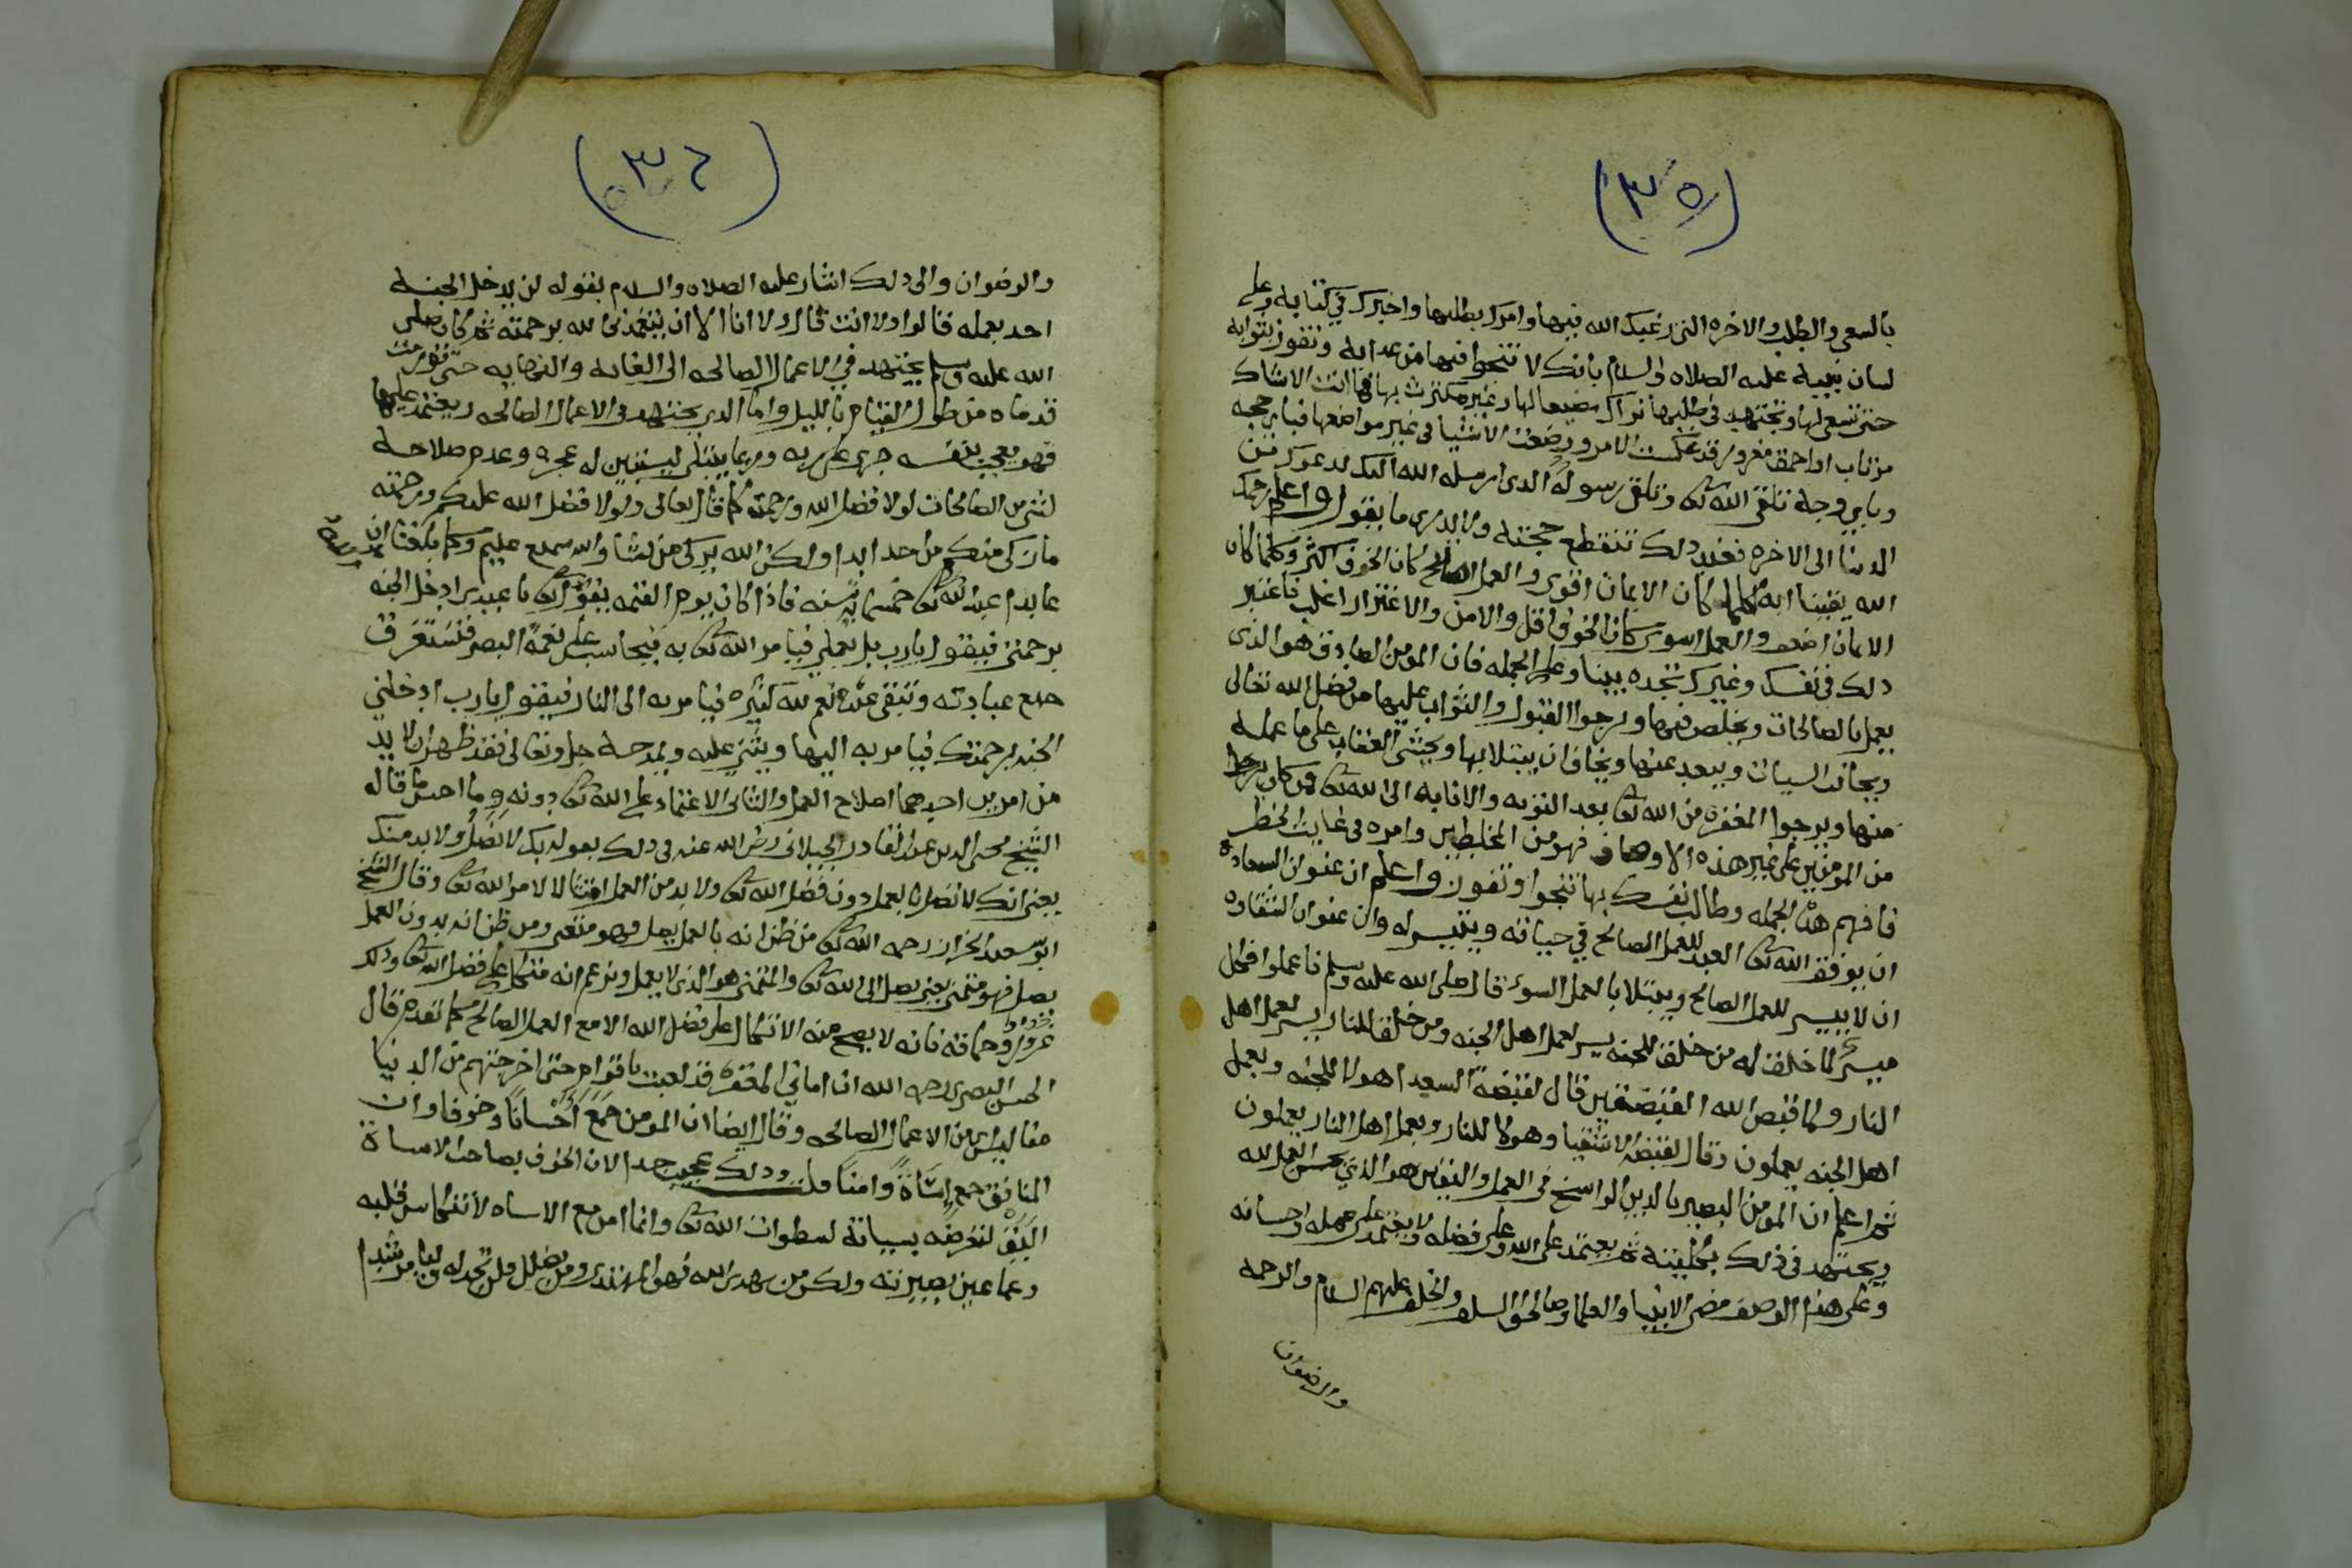 (٣٥)
بالسعي والطلب والاخره التي رغبك الله فيها وامرك بطلبها واخبرك في كتابه وعلى
لسان نبيه عليه الصلاه والسلام بانك لا تنجوا فيها من عدابه وتفوز بثوابه
حتى تسعى لها وتجتهد في طلبها نراك مضيعا لها وغير مكترث بها فما انت الا شاك
مرتاب او احمق مغرور قد عكست الامر ووضعت الاشيا في غير مواضعها فباي حجه
وباي وجه تلقى الله تعالى وتلقى رسوله الدي ارسله الله اليك لدعوك من
الدنيا الى الاخره فعند دلك تنقطع حجته ولا يدري ما يقول واعلم رحمك
الله يقينا انه كلما كان الايمان اقوى والعمل الصالح كان الخوف اكثر وكلما كان
الايمان اضعف والعمل اسوى كان الخوف اقل والامن والاغترار اغلب فاعتبر
دلك في نفسك وغيرك تجده بينا وعلى الجمله فان المومن الصادق هو الذي
يعمل بالصالحات ويخلص فيها ويرجوا القبول والثواب عليها من فضل الله تعالى
ويجانب السيات ويبعد عنها ويخاف ان يبتلا بها ويخشى العقاب على ما عمله
منها ويرجوا المغفره من الله تعالى بعد التوبه والانابه الى الله تعالى ومن كان
من المومنين على غير هذه الاوصاف فهو من المخلطين وامره في غايت الخطر
فافهم هذه الجمله وطالب نفسك بها تنجوا وتفوز واعلم ان عنوان السعاده
ان يوفق الله تعالى العبد للعمل الصالح في حياته وييسر له وان عنوان الشقاده
ان لا ييسر للعمل الصالح ويبتلا بالعمل السوء قال صلى الله عليه وسلم اعملوا فكل
ميسر لما خلق له من خلق للجنه يسر لعمل اهل الجنه ومن خلق للنار يسر لعمل اهل
النار ولما قبض الله القبضتين قال لقبضة السعدا هولا للجنه وبعمل
اهل الجنه يعملون وقال لقبضة الاشقيا وهولا للنار وبعمل اهل النار يعملون
ثم اعلم ان المومن البصير بالدين الراسخ في العمل واليقين هو الذي يحسن العمل لله
ويجتهد في ذلك بكليته ثم يعتمد على الله وعلى فضله ولا يعتمد على عمله واحسانه
وعلى هذا الوصف مضى الانبيا والعلما وصالحوا السلف والخلف عليهم السلام والرحمه
والرضوان
(٣٦)
والرضوان والى دلك اشار عليه الصلاه والسلام بقوله لن يدخل الجنه
احد بعمله قالوا ولا انت قال ولا انا الا ان يتغمدني الله برحمته ثم كان صلى
الله عليه وسلم يجتهد في الاعمال الصالحه الى الغايه والنهايه حتى تورمت
قدماه من طول القيام بالليل واما الدي يجتهد في الاعمال الصالحه ويعتمد عليها
فهو معجب بنفسه جري على ربه وربما يبتلى ليستبين له عجزه وعدم صلاحه
لشي من الصالحات لولا فضل الله ورحمته كما قال تعالى ولولا فضل الله عليكم ورحمته
ما زكى منكم من احد ابدا ولكن الله يزكي من يشا والله سميع عليم وكما بلغنا ان
عابدا عبد الله تعالى خمسمائة سنه فاذا كان يوم القيمه يقول الله تعالى يا عبدي ادخل الجنه
برحمتي فيقول يارب بل بعملي فيامر الله تعالى به فيحاسب على نعمة البصر فتستغرق
جميع عبادته وتبقى عنده نعم لله كثيره فيامر به الى النار فيقول يارب ادخلني
الجنه برحمتك فيامر به اليها ويثني عليه ويمدحه جل وتعالى فقد ظهر ان لا بد
من امرين احدهما اصلاح العمل والثاني الاعتماد على الله تعالى دونه وما احسن ما قاله
الشيخ محيى الدين عبد القادر الجيلاني رضي الله عنه في دلك بعوله بك لا نصل ولا بد منك
يعني انك لا تصل بالعمل دون فضل الله تعالى ولا بد من العمل امتثالا لامر الله تعالى وقال الشيخ
ابو سعيد الخراز رحمه الله تعالى من ظن انه بالعمل يصل فهو متعني ومن ظن انه بدون العمل
يصل فهو متمني يعني يصل الى الله تعالى والمتمني هو الذي لا يعمل ويزعم انه متكل على فضل الله تعالى ودلك
غرور وحماقه فانه لا يصح منه الاتكال على فضل الله الا مع العمل الصالح كما تقدم قال
الحسن البصري رحمه الله ان اماني المغفره قد لعبت باقوام حتى اخرجتهم من الدنيا
مفاليس من الاعمال الصالحه وقال ايضا ان المومن جمع احسانا وخوفا وان
المنافق جمع إسآة وامنا ودلك عجيب جدا لان الخوف بصاحب الاساة
اليق لتعرضه بسيانه لسطوات الله تعالى وانما امن مع الاساه لانتكاس قلبه
وعما عين بصيرته ولكن من يهدي الله فهو المهتدي ومن يضلل فلن تجد له وليا مرشدا